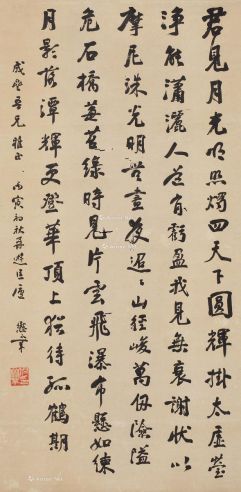 君見月光明照燭四天下圓輝掛太虛瑩
淨能瀟灑人道有虧盈我見無衰謝狀以
摩尼珠光明無晝夜迢迢山徑峻萬仞險隘
危石橋莓苔綠時見片雲飛瀑布懸如練
月影落潭輝更登華頂上猶待孤鶴期
吾兄雅正 丙寅初秋再遊匡廬